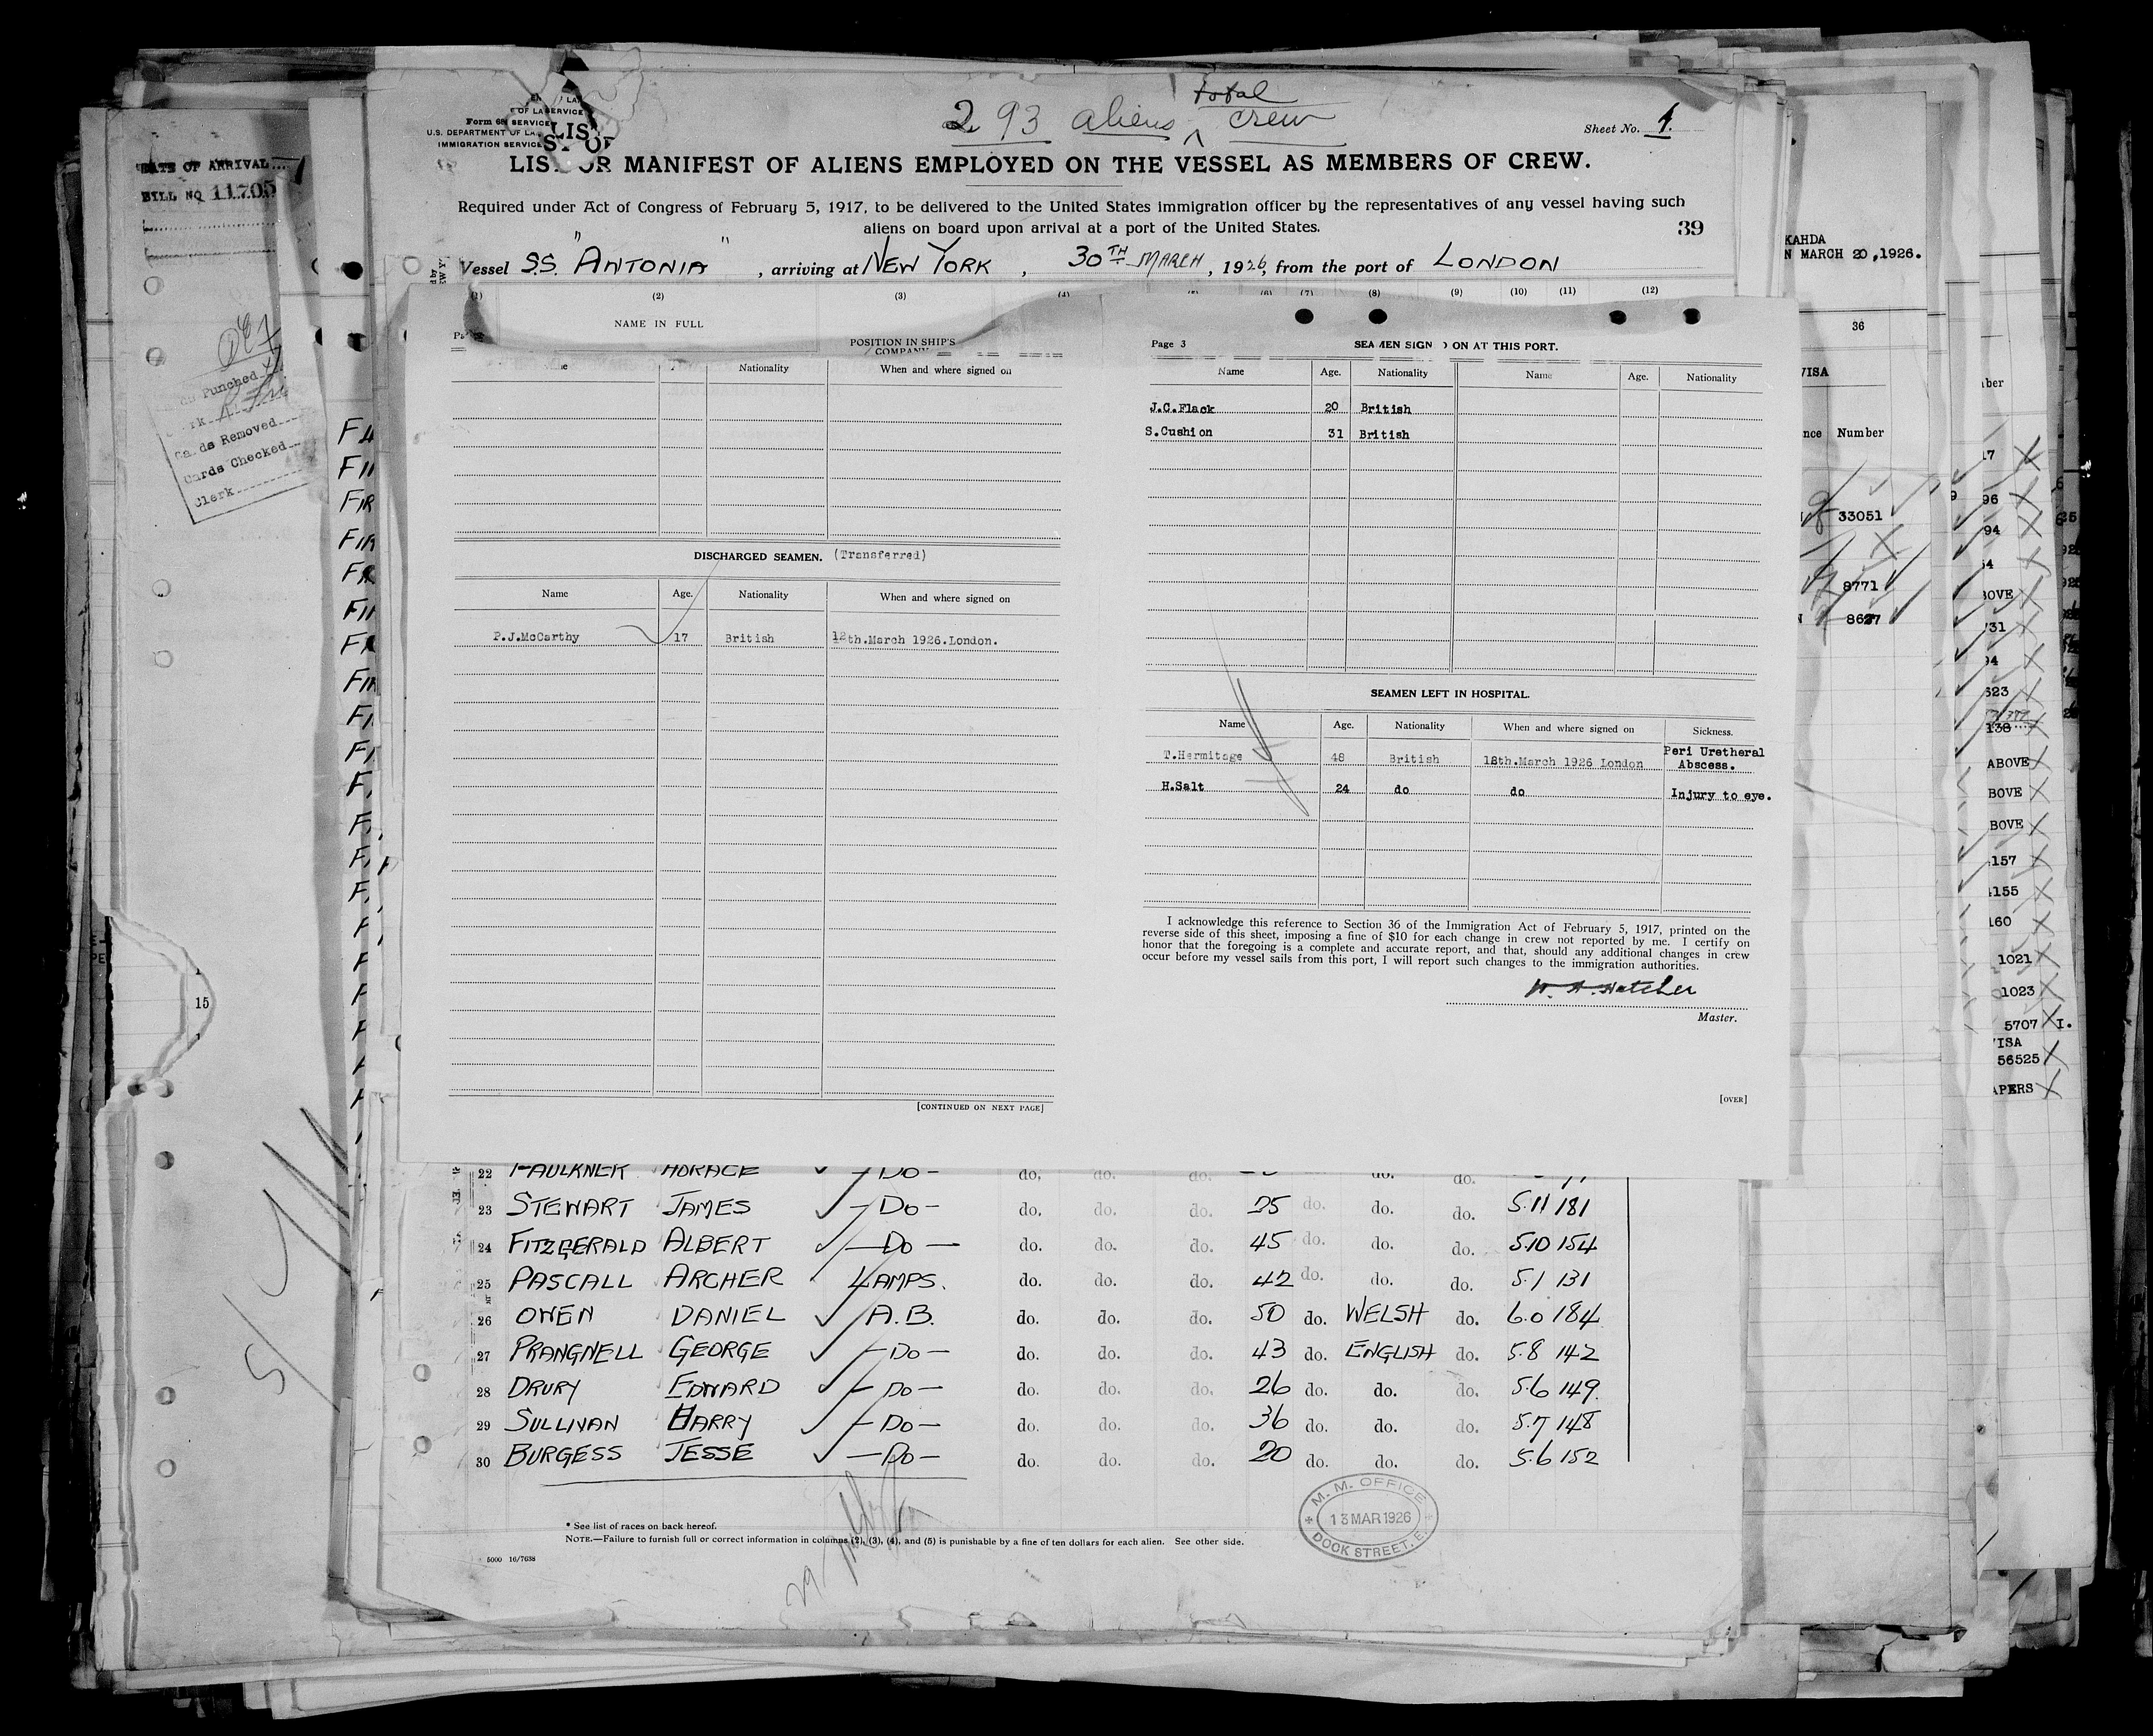 2 93 aliens total crew
Form 68
U.S. DEPARTMENT OF LA
IMMIGRATION SERVICE
Sheet No. 1.
LIST OR MANIFEST OF ALIENS EMPLOYED ON THE VESSEL AS MEMBERS OF CREW.
Required under Act of Congress of February 5, 1917, to be delivered to the United States immigration officer by the representatives of any vessel having such
aliens on board upon arrival at a port of the United States.
39
Vessel S.S. "ANTONIA", arriving at NEW YORK, 30TH MARCH, 1926, from the port of LONDON
(2) (3) (7) (8) (9) (10) (11) (12)
NAME IN FULL
POSITION IN SHIP'S COMPANY
Nationality When and where signed on
DISCHARGED SEAMEN. (Transferred)
Name Age. Nationality When and where signed on
P.J.McCarthy 17 British 12th.March 1926.London.
[CONTINUED ON NEXT PAGE]
Page 3
SEAMEN SIGN ON AT THIS PORT.
Name Age. Nationality Name Age. Nationality
J.C.Flack 20 British
S.Cushion 31 British
SEAMEN LEFT IN HOSPITAL.
Name Age. Nationality When and where signed on Sickness.
T.Hermitage 48 British 12th.March 1926 London Peri Urethral Abscess.
H.Salt 24 do do Injury to eye.
I acknowledge this reference to Section 36 of the Immigration Act of February 5, 1917, printed on the
reverse side of this sheet, imposing a fine of $10 for each change in crew not reported by me. I certify on
honor that the foregoing is a complete and accurate report, and that, should any additional changes in crew
occur before my vessel sails from this port, I will report such changes to the immigration authorities.
Master.
[OVER]
22 FAULKNER HORACE -DO- do. do. do. do. do.
23 STEWART JAMES -DO- do. do. do. 25 do. do. do. 5.11 181
24 FITZGERALD ALBERT -DO- do. do. do. 45 do. do. do. 5.10 154
25 PASCALL ARCHER LAMPS. do. do. do. 42 do. do. do. 5.1 131
26 OWEN DANIEL A.B. do. do. do. 50 do. WELSH do. 6.0 184
27 PRANGNELL GEORGE -DO- do. do. do. 43 do. ENGLISH do. 5.8 142
28 DRURY EDWARD -DO- do. do. do. 26 do. do. do. 5.6 149
29 SULLIVAN HARRY -DO- do. do. do. 36 do. do. do. 5.7 148
30 BURGESS JESSE -DO- do. do. do. 20 do. do. do. 5.6 152
* See list of races on back hereof.
NOTE.—Failure to furnish full or correct information in columns (2), (3), (4), and (5) is punishable by a fine of ten dollars for each alien. See other side.
5000 16/7638
M. M. OFFICE
13 MAR 1926
DOCK STREET. E.
DATE OF ARRIVAL
BILL NO 11705
Punched
Cards Removed
Cards Checked
Clerk
15
KAHDA
N MARCH 20,1926.
36
VISA
Number
33051
8771
8627
ABOVE
BOVE
BOVE
157
155
160
1021
1023
5707
56525